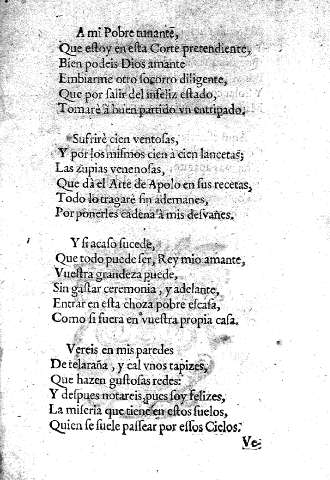 A mi Pobre tunante,
Que estoy en esta Corte pretendiente,
Bien podeis Dios amante
Embiarme otro socorro diligente,
Que por salir del infeliz estado,
Tomarè à buen partido vn entripado.
Sufrirè cien ventosas,
Y por los mismos cien à cien lancetas;
Las zupias venenosas,
Que dà el Arte de Apolo en sus recetas,
Todo lo tragarè sin ademanes,
Por ponerles cadena à mis desvanes.
Y si acaso sucede,
Que todo puede ser, Rey mio amante,
Vuestra grandeza puede,
Sin gastar ceremonia, y adelante,
Entrar en esta choza pobre escasa,
Como si fuera en vuestra propia casa.
Vereis en mis paredes
De telaraña, y cal vnos tapizes,
Que hazen gustosas redes:
Y despues notareis, pues soy felizes,
La miseria que tiene en estos suelos,
Quien se suele passear por essos Cielos.
Ve-